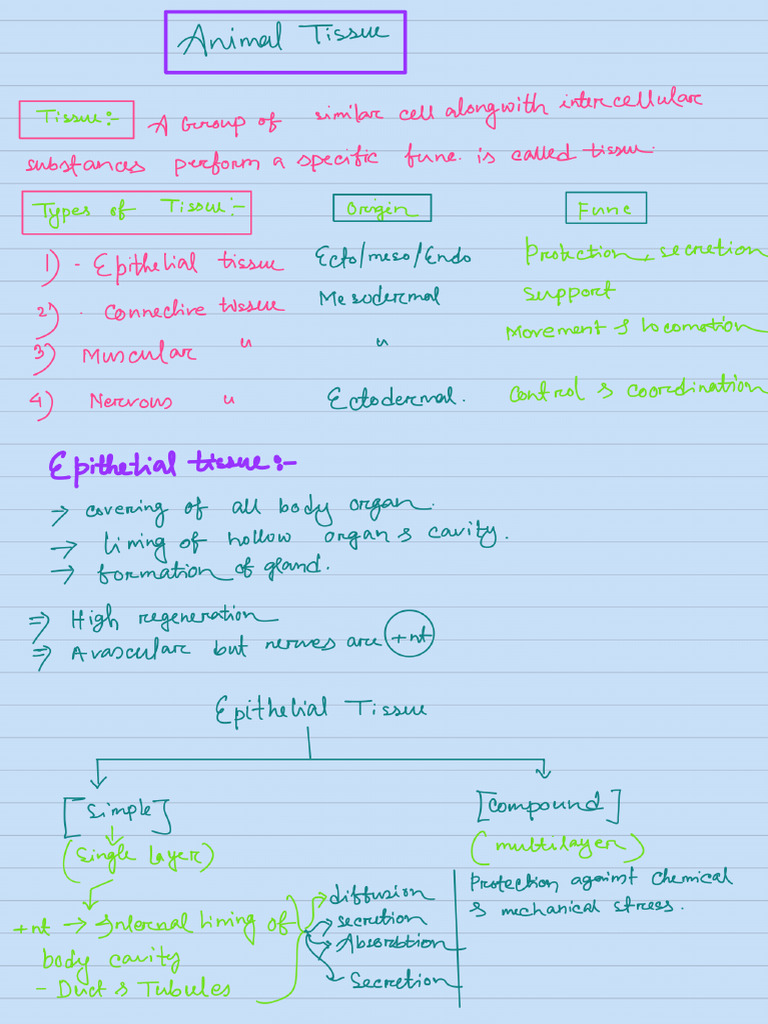 Animal Tissue
Tissue:- A Group of similar cell along with intercellular
substances perform a specific func. is called tissue.
Types of Tissue:- Origin Func
1) - Epithelial tissue Ecto/meso/Endo Protection, secretion
2) . Connective tissue Mesodermal support
3) Muscular " " Movement & locomotion
4) Nervous " Ectodermal. control & coordination
Epithelial tissue:-
→ covering of all body organ.
→ lining of hollow organ & cavity.
→ formation of gland.
⇒ High regeneration
⇒ Avascular but nerves are +nt
Epithelial Tissue
[Simple] [compound]
(Single Layer) (multilayer)
+nt → Internal lining of
body cavity
- Duct & Tubules
diffusion
secretion
Absorbtion
Secretion
Protection against chemical
& mechanical stress.